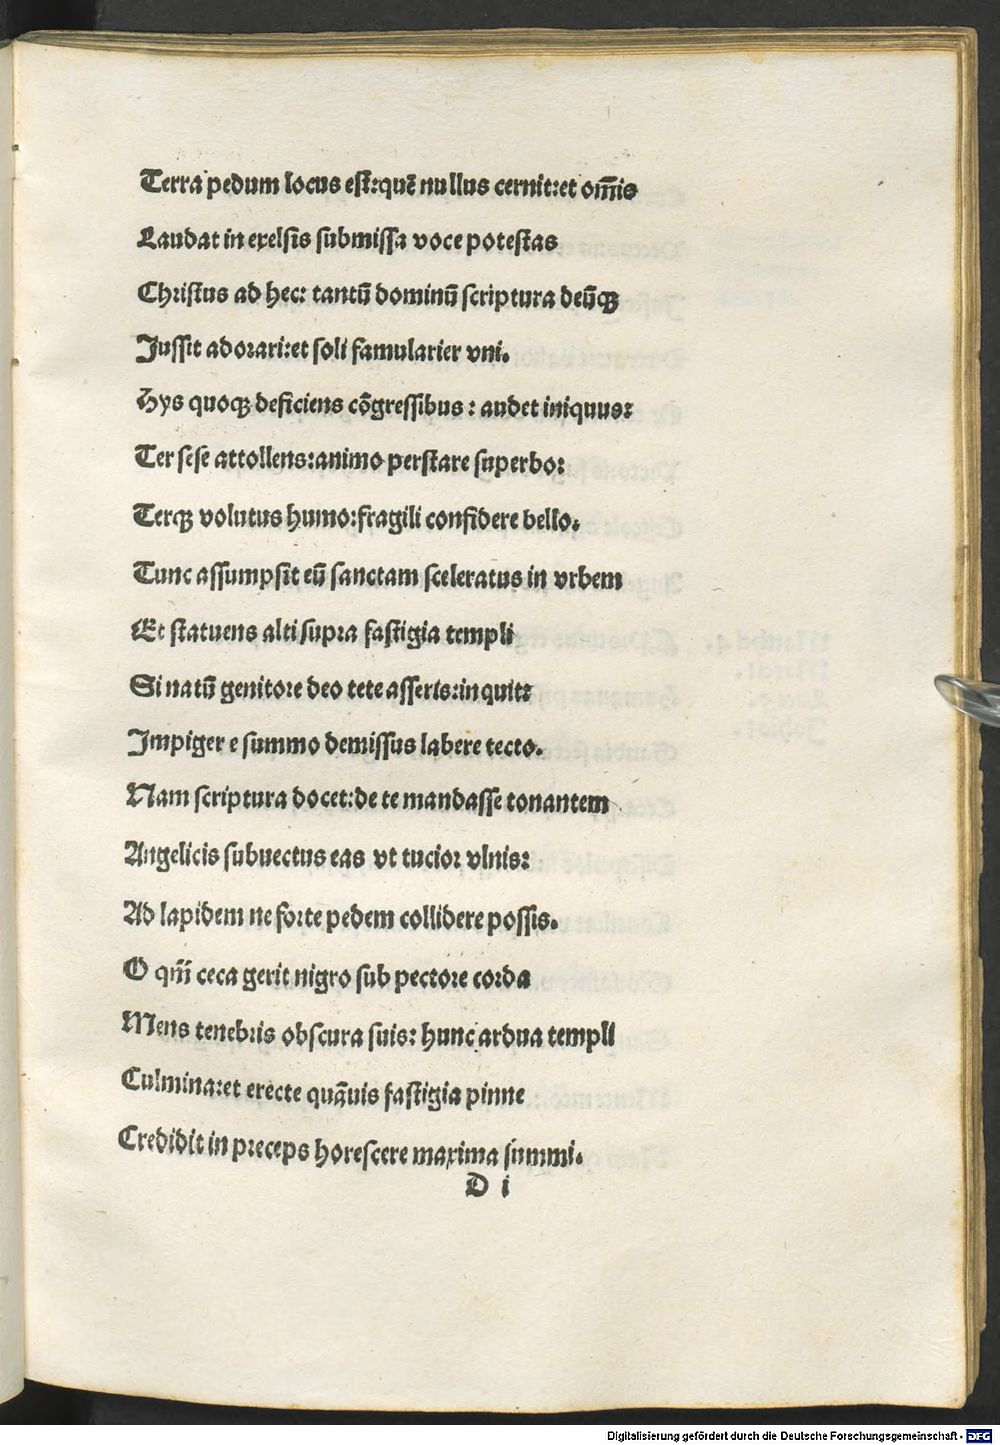 Terra pedum locus est:quē nullus cernit:et om̄is
Laudat in exelsis submissa voce potestas
Christus ad hec: tantū dominū scriptura deūqꝫ
Jussit adorari:et soli famularier vni.
Hys quoqꝫ deficiens cōgressibus : audet iniquus:
Ter sese attollens:animo perstare superbo:
Terqꝫ volutus humo:fragili confidere bello.
Tunc assumpsit eū sanctam sceleratus in vrbem
Et statuens alti supra fastigia templi
Si natū genitore deo tete asseris:inquit:
Impiger e summo demissus labere tecto.
Nam scriptura docet:de te mandasse tonantem
Angelicis subuectus eas vt tucior vlnis:
Ad lapidem ne forte pedem collidere possis.
O qm̄ ceca gerit nigro sub pectore corda
Mens tenebris obscura suis: hunc ardua templi
Culmina:et erecte quāuis fastigia pinne
Credidit in preceps horescere maxima summi.
D i
Digitalisierung gefördert durch die Deutsche Forschungsgemeinschaft - DFG